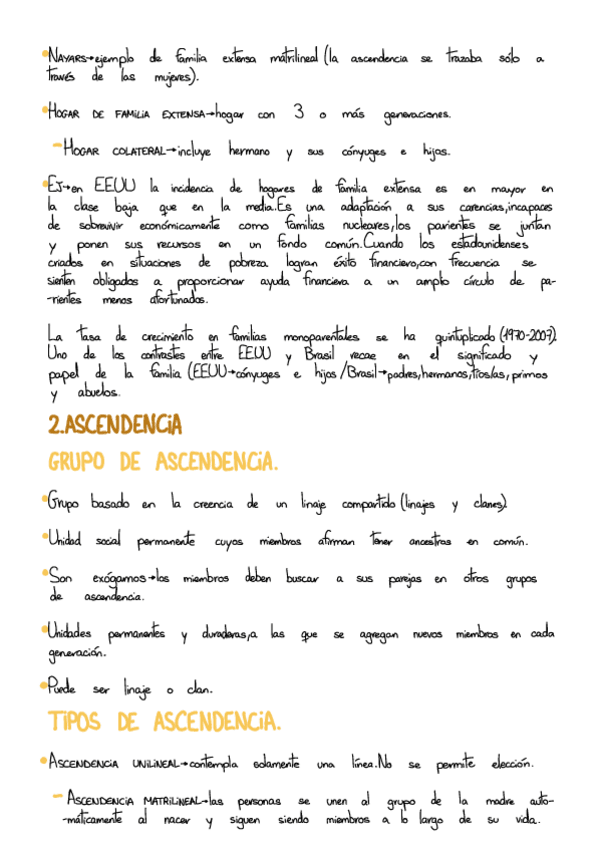 •NAYARS→ejemplo de familia extensa matrilineal (la ascendencia se trazaba sólo a
través de las mujeres).
•HOGAR DE FAMILIA EXTENSA→hogar con 3 o más generaciones.
-HOGAR COLATERAL→incluye hermano y sus cónyuges e hijos.
•EJ→en EEUU la incidencia de hogares de familia extensa es en mayor en
la clase baja que en la media.Es una adaptación a sus carencias,incapaces
de sobrevivir económicamente como familias nucleares,los parientes se juntan
y ponen sus recursos en un fondo común.Cuando los estadounidenses
criados en situaciones de pobreza logran éxito financiero,con frecuencia se
sienten obligados a proporcionar ayuda financiera a un amplo círculo de pa-
-rientes menos afortunados.
La tasa de crecimiento en familias monoparentales se ha quintuplicado (1970-2007).
Uno de los contrastes entre EEUU y Brasil recae en el significado y
papel de la familia (EEUU→cónyuges e hijos/Brasil→padres,hermanos,tíos/as, primos
y abuelos.
2.ASCENDENCIA
GRUPO DE ASCENDENCIA.
•Grupo basado en la creencia de un linaje compartido (linajes y clanes).
•Unidad social permanente cuyos miembros afirman tener ancestros en común.
•Son exógamos→los miembros deben buscar a sus parejas en otros grupos
de ascendencia.
•Unidades permanentes y duraderas,a las que se agregan nuevos miembros en cada
generación.
•Puede ser linaje o clan.
TIPOS DE ASCENDENCIA.
•ASCENDENCIA UNILINEAL→contempla solamente una línea.No se permite elección.
-ASCENDENCIA MATRILINEAL→las personas se unen al grupo de la madre auto-
-máticamente al nacer y siguen siendo miembros a lo largo de su vida.